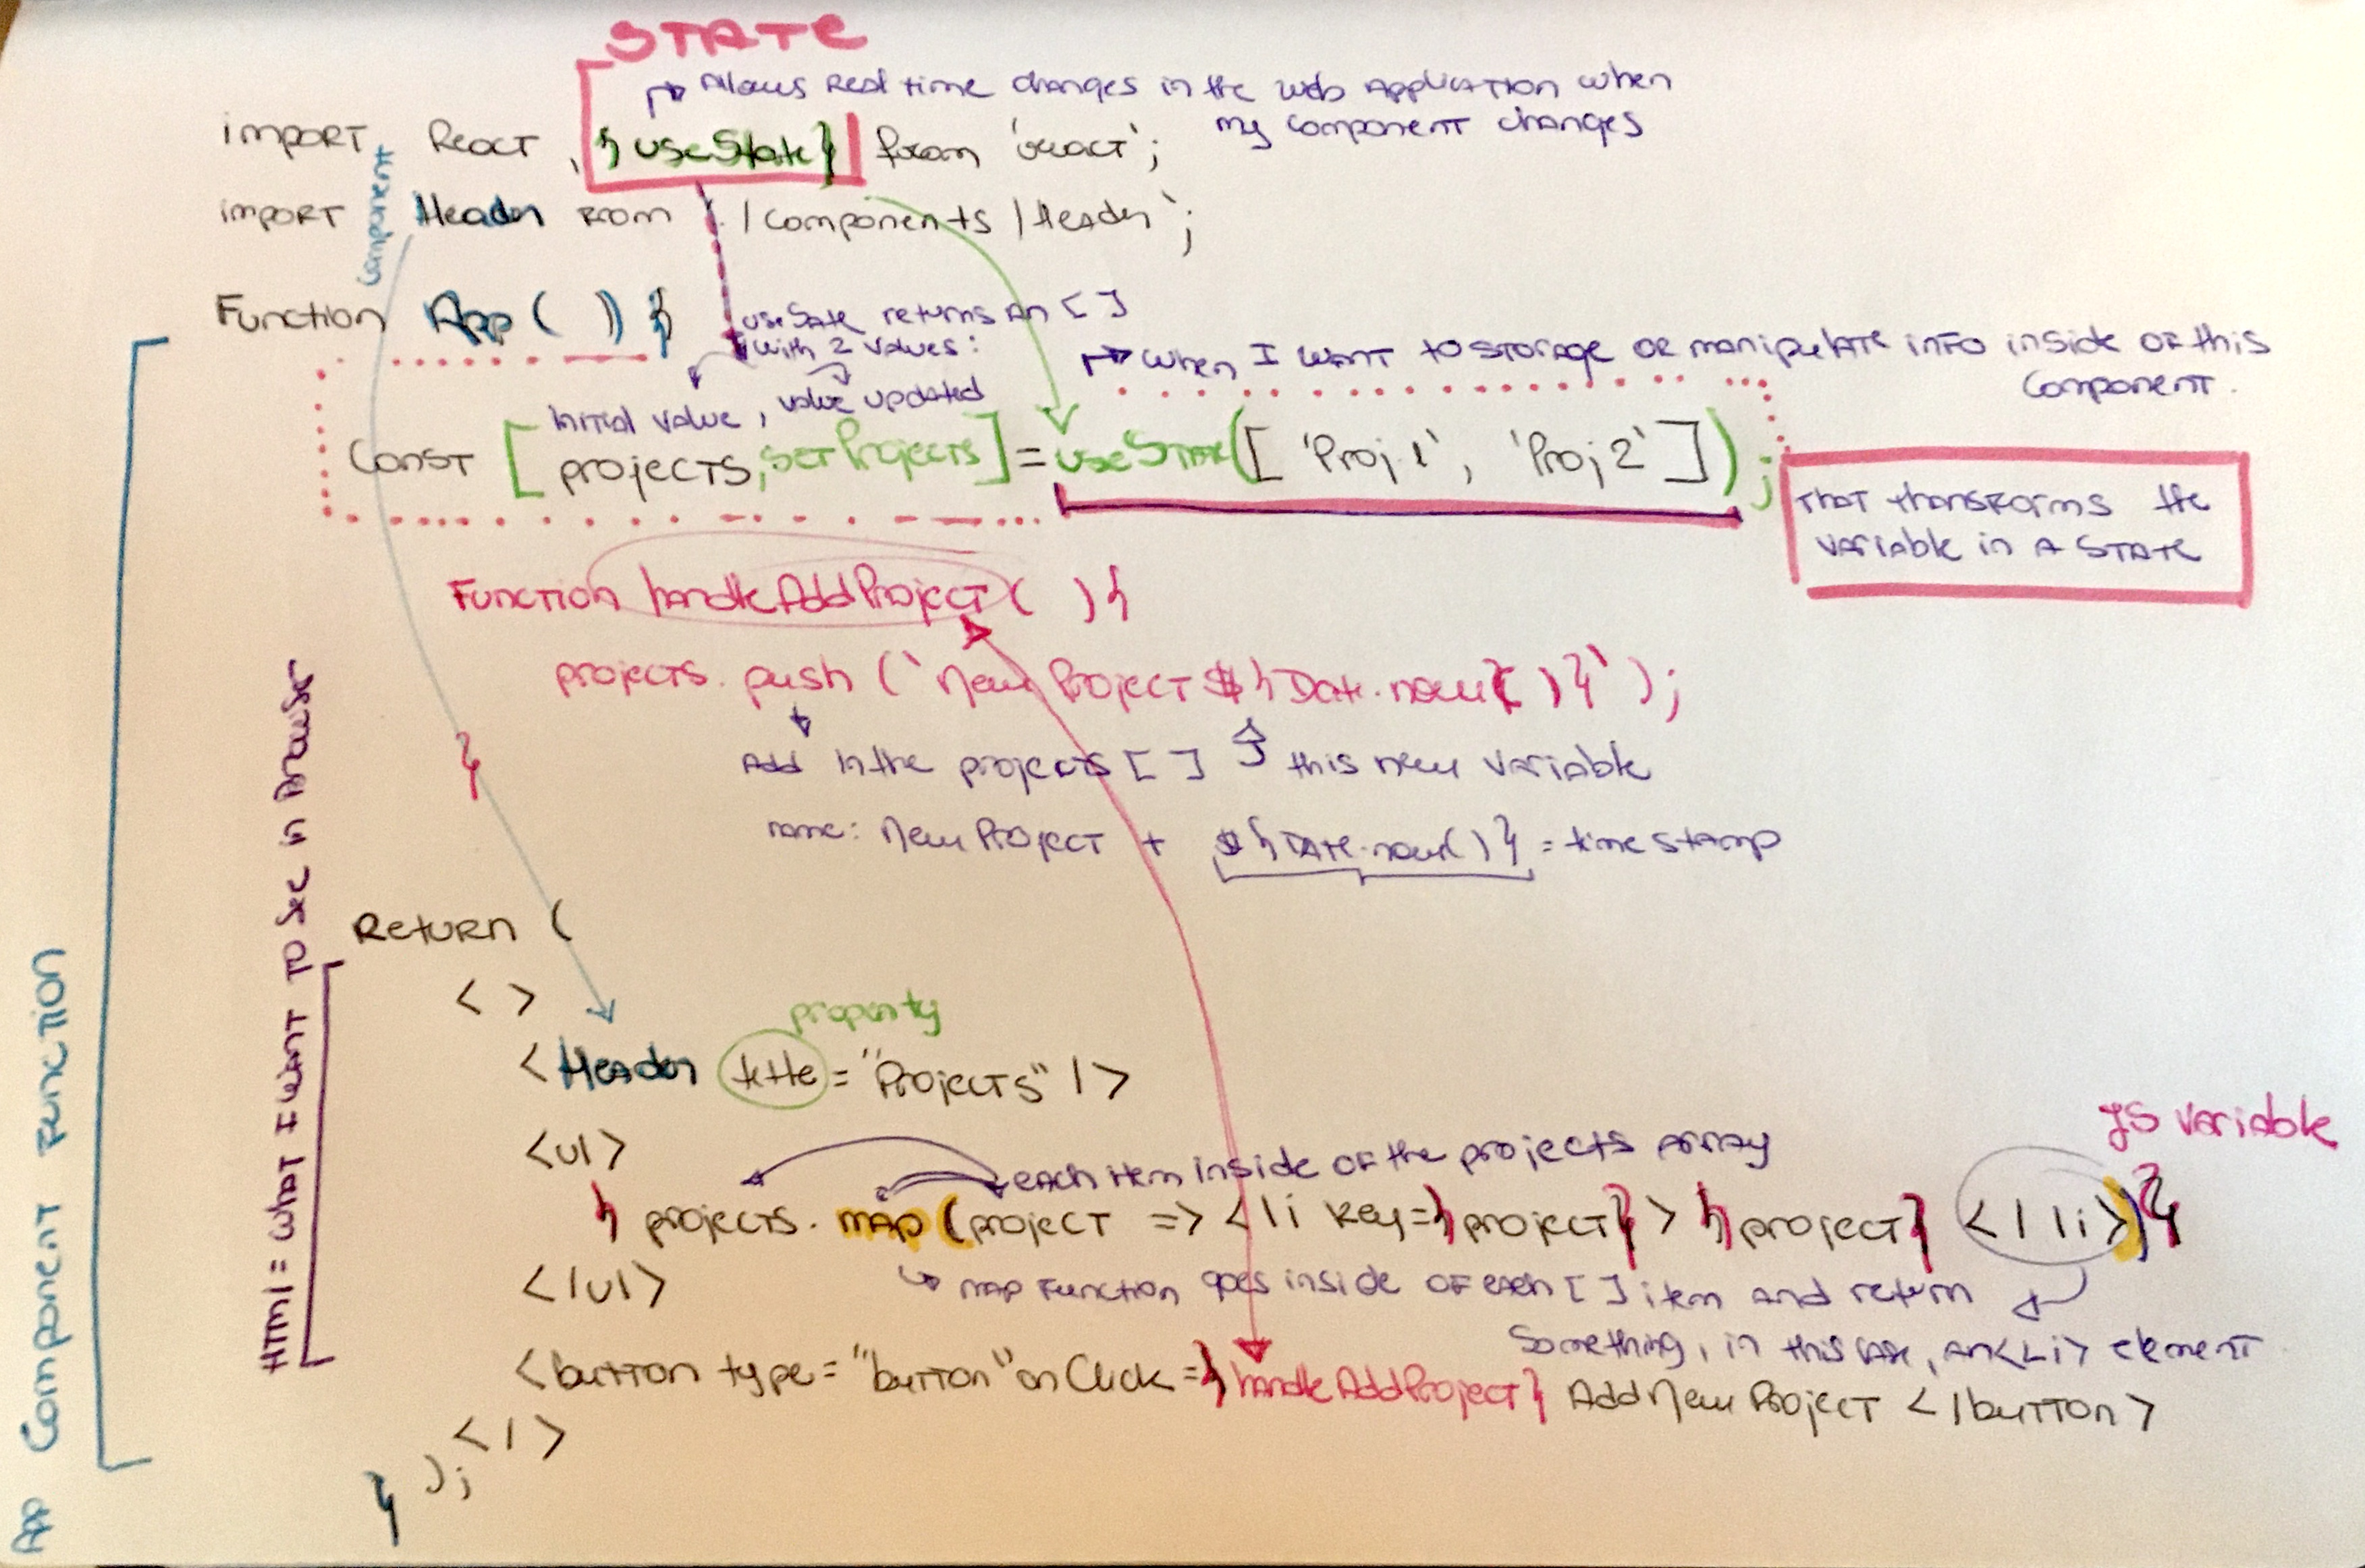 STATE
Allows Real time changes in the web application when
my component changes
import React, {useState} from 'react';
component
import Header from './components/Header';
Function App() {
useState returns an []
with 2 values:
initial value, value updated
when I want to storage or manipulate info inside of this
component.
Const [projects, setProjects] = useState(['Proj.1', 'Proj2']);
That transforms the
variable in a STATE
Function handleAddProject() {
projects.push(`New Project ${Date.now()}`);
Add in the projects [] this new variable
name: New Project + ${Date.now()} = timestamp
}
Return (
< >
property
<Header title="Projects" />
<ul>
each item inside of the projects array
JS variable
{projects.map(project => <li key={project}> {project} </li>)}
map function goes inside of each [] item and return
something, in this case, an <Li> element
</ul>
<button type="button" onClick={handleAddProject} Add New Project </button>
</>
);
}
Html = what I want to see in browser
App Component Function